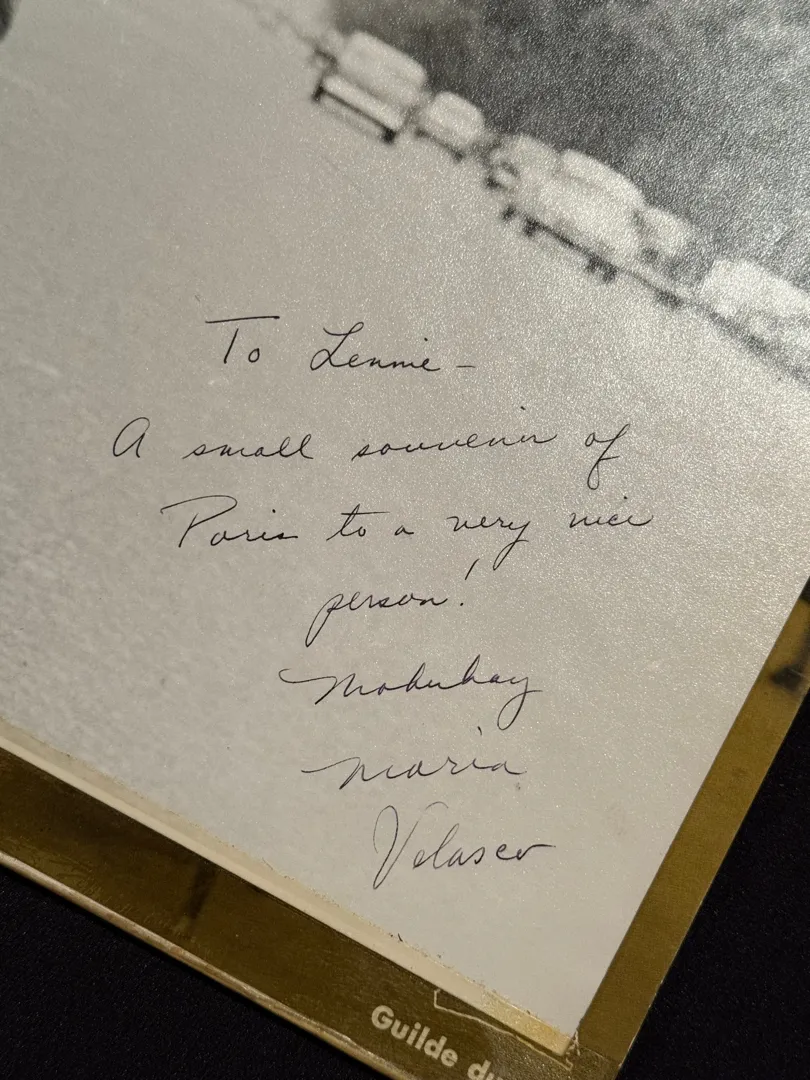 To Lennie –
A small souvenir of
Paris to a very nice
person!
Maria
Velasco
Guilde du